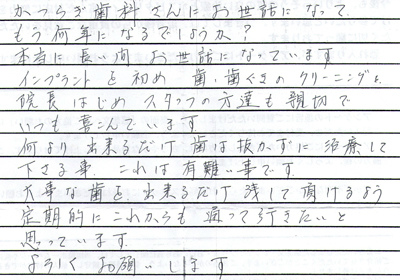 かつらぎ歯科さんにお世話になって
もう何年になるでしょうか?
本当に長い間お世話になっています
インプラントを初め 歯・歯ぐきのクリーニングと
院長はじめ スタッフの方達も親切で
いつも喜こんでいます
何より出来るだけ歯は抜かずに治療して
下さる事 これは有難い事です
大事な歯を出来るだけ残して頂けるよう
定期的にこれからも通って行きたいと
思っています
よろしくお願いします